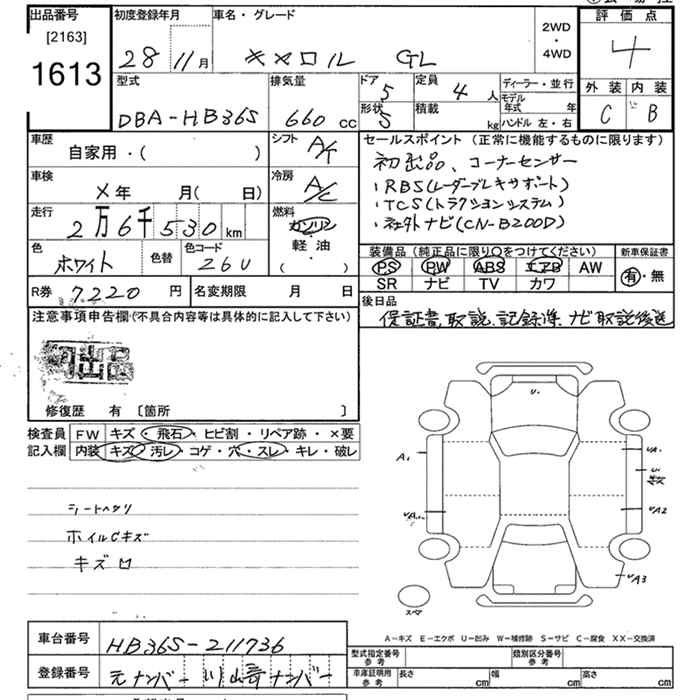 出品番号 初度登録年月 車名・グレード 2WD・4WD 評価点
[2163]
1613 28年11月 キャロル GL 4
型式 排気量 ドア 5 定員 4人 ディーラー・並行 外装 内装
DBA-HB36S 660cc 形状 5 積載 kg モデル年式 年 C B
ハンドル 左・右
車歴 シフト セールスポイント (正常に機能するものに限ります)
自家用・( ) A/T 初出品、コーナーセンサー
車検 冷房 ・RBS(レーダーブレーキサポート)
×年 月( 日) A/C ・TCS(トラクションシステム)
走行 燃料 ・社外ナビ(CN-B200D)
2万6千530km ガソリン
色 色替 色コード 軽油 装備品(純正品に限り○をつけてください) 新車保証書
ホワイト 26U ( ) PS PW ABS エアB AW 有・無
SR ナビ TV カワ
R券 7220円 名変期限 月 日 後日品
注意事項申告欄(不具合内容等は具体的に記入して下さい) 保証書、取説、記録簿、ナビ取説後送
初出品
修復歴 有 [箇所 ]
検査員 FW キズ・飛石・ヒビ割・リペア跡・×要
記入欄 内装 キズ・汚レ・コゲ・穴・スレ・キレ・破レ
U.
A1
UA1
UA2
UA3
シートヘタリ
ホイルCキズ
キズ
スペア
A-キズ E-エクボ U-凹み W-補修跡 S-サビ C-腐食 XX-交換済
車台番号 HB36S-211736
型式指定番号 参考 類別区分番号 参考
登録番号 元ナンバー 川崎ナンバー
車庫証明用 参考 長さ cm 幅 cm 高さ cm